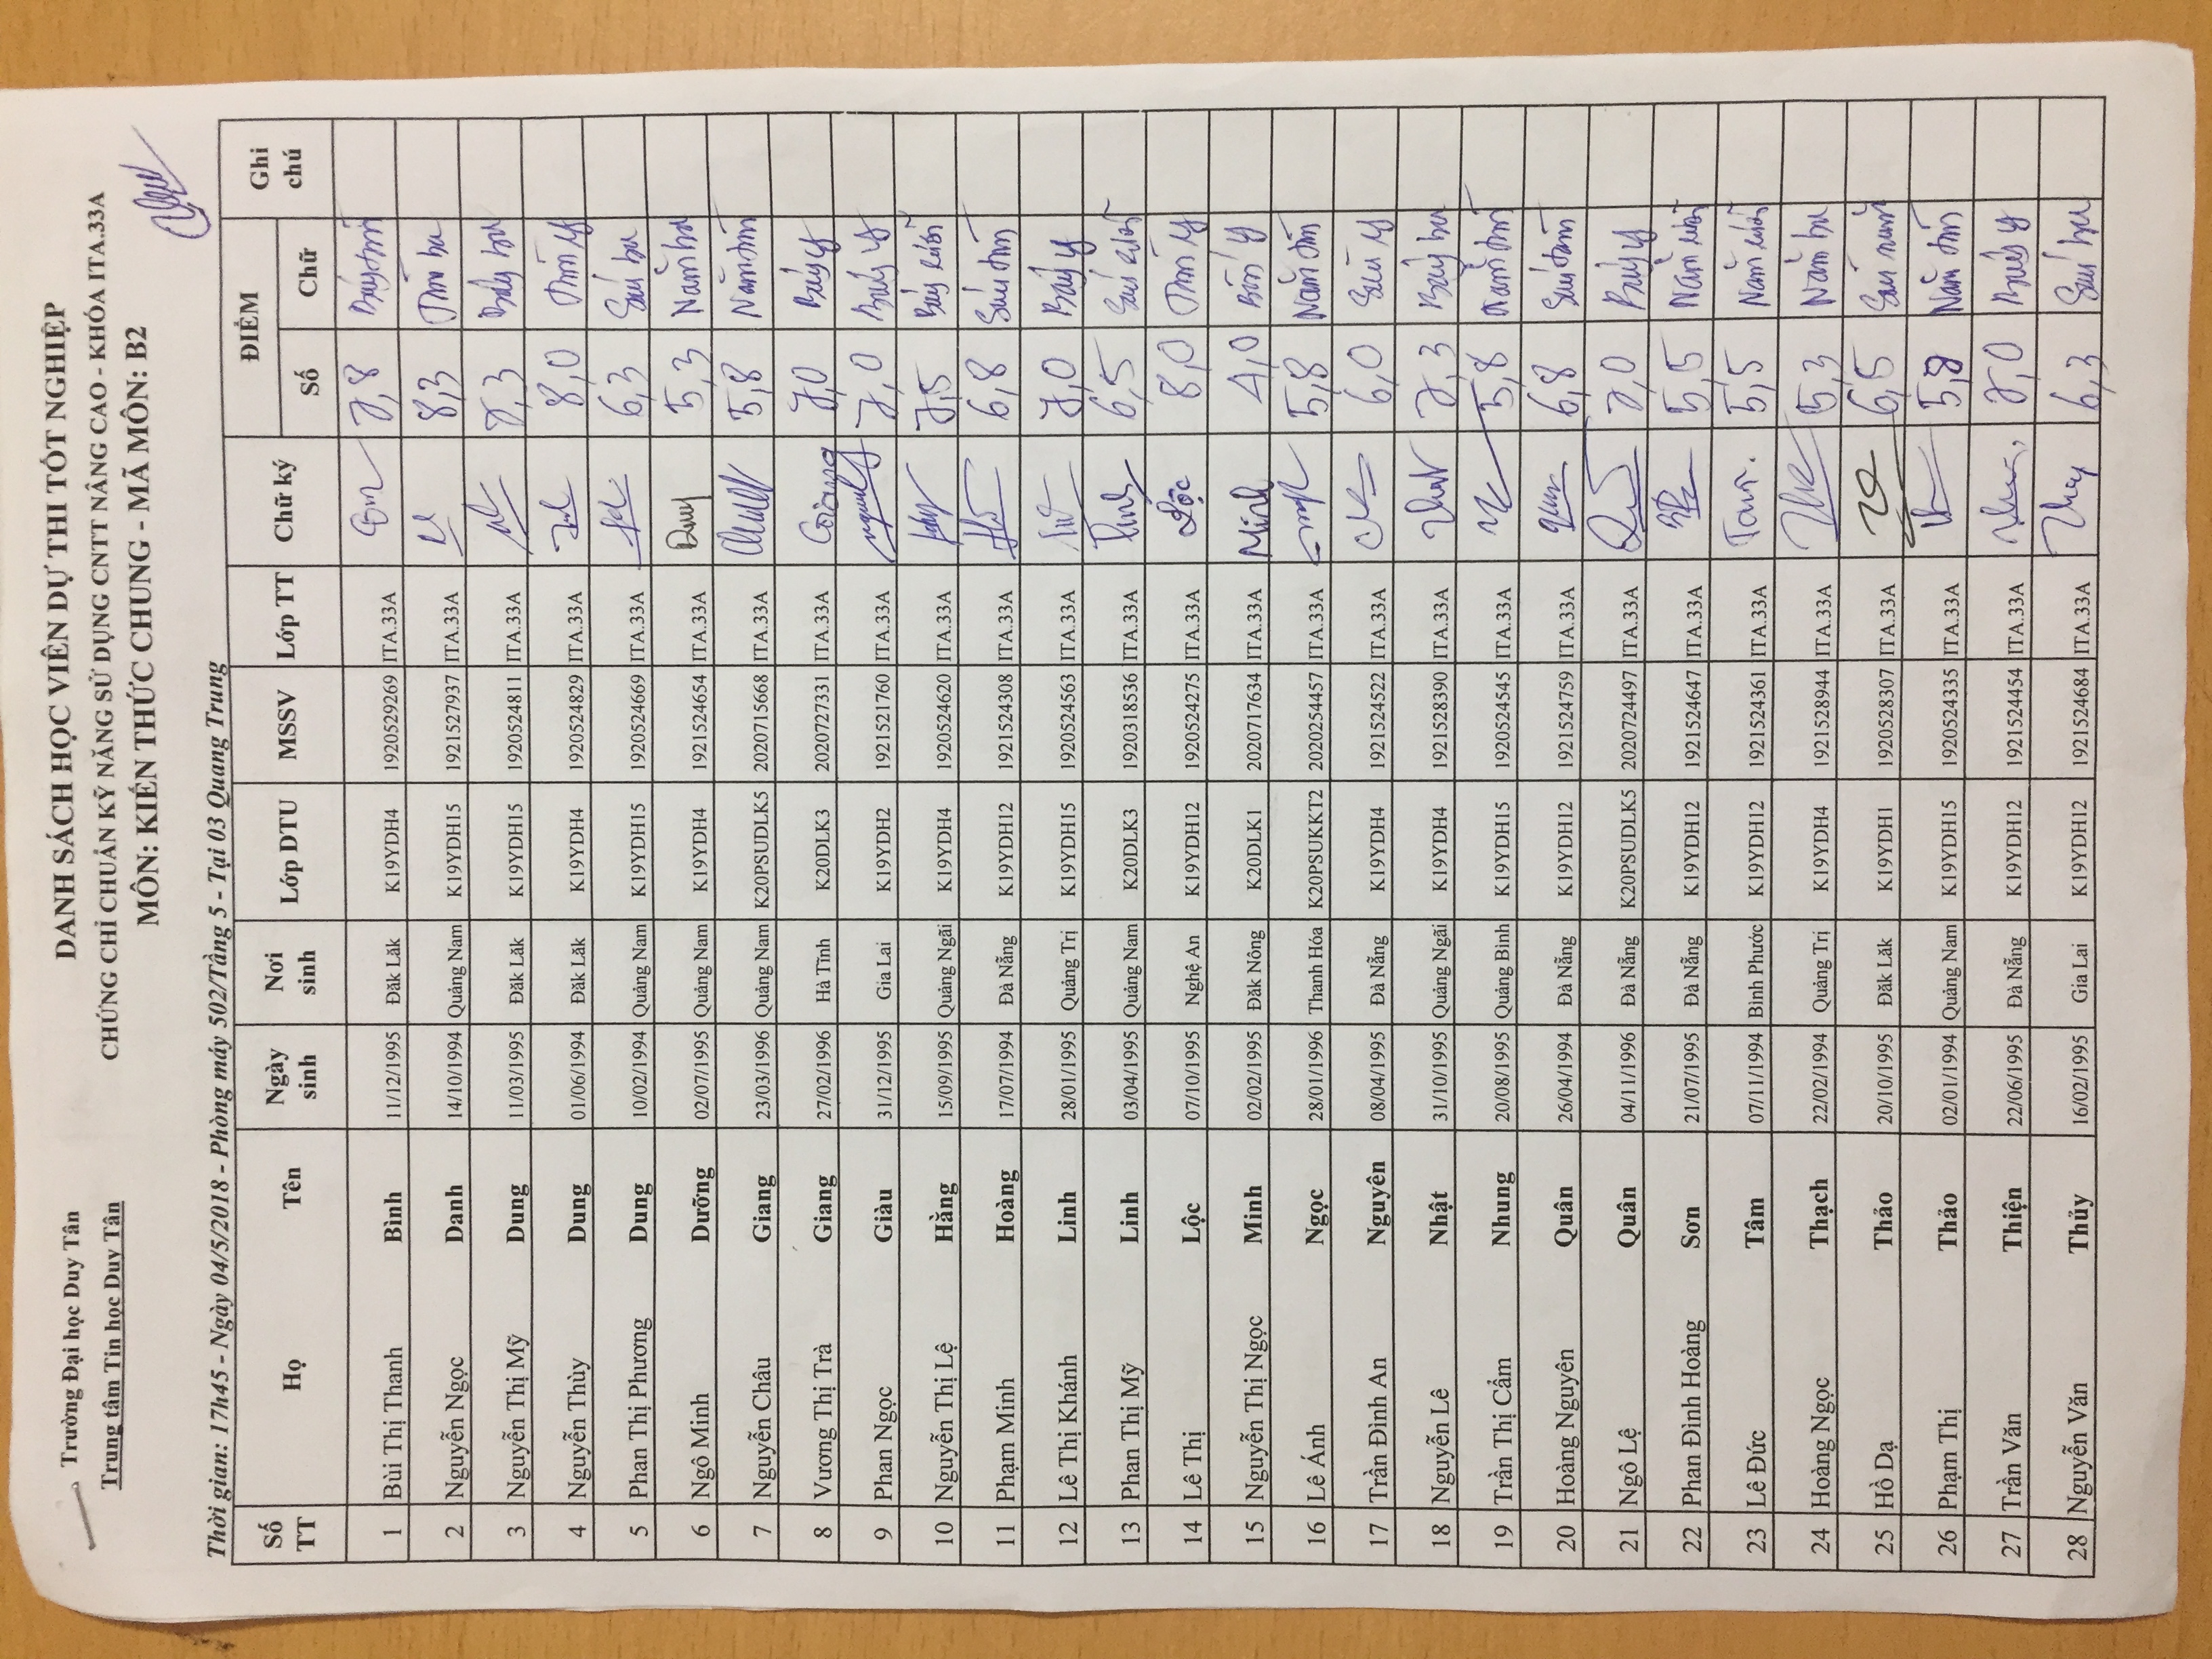 Trường Đại học Duy Tân
Trung tâm Tin học Duy Tân
DANH SÁCH HỌC VIÊN DỰ THI TỐT NGHIỆP
CHỨNG CHỈ CHUẨN KỸ NĂNG SỬ DỤNG CNTT NÂNG CAO - KHÓA ITA.33A
MÔN: KIẾN THỨC CHUNG - MÃ MÔN: B2
Thời gian: 17h45 - Ngày 04/5/2018 - Phòng máy 502/Tầng 5 - Tại 03 Quang Trung
Số TT Họ Tên Ngày sinh Nơi sinh Lớp DTU MSSV Lớp TT Chữ ký ĐIỂM Số Chữ Ghi chú
1 Bùi Thị Thanh Bình 11/12/1995 Đăk Lăk K19YDH4 1920529269 ITA.33A 7,8 Bảy tám
2 Nguyễn Ngọc Danh 14/10/1994 Quảng Nam K19YDH15 1921527937 ITA.33A 8,3 Tám ba
3 Nguyễn Thị Mỹ Dung 11/03/1995 Đăk Lăk K19YDH15 1920524811 ITA.33A 7,3 Bảy ba
4 Nguyễn Thùy Dung 01/06/1994 Đăk Lăk K19YDH4 1920524829 ITA.33A 8,0 Tám
5 Phan Thị Phương Dung 10/02/1994 Quảng Nam K19YDH15 1920524669 ITA.33A 6,3 Sáu ba
6 Ngô Minh Dưỡng 02/07/1995 Quảng Nam K19YDH4 1921524654 ITA.33A Duy 5,3 Năm ba
7 Nguyễn Châu Giang 23/03/1996 Quảng Nam K20PSUDLK5 2020715668 ITA.33A 5,8 Năm tám
8 Vương Thị Trà Giang 27/02/1996 Hà Tĩnh K20DLK3 2020727331 ITA.33A Giang 7,0 Bảy
9 Phan Ngọc Giàu 31/12/1995 Gia Lai K19YDH2 1921521760 ITA.33A 7,0 Bảy
10 Nguyễn Thị Lệ Hằng 15/09/1995 Quảng Ngãi K19YDH4 1920524620 ITA.33A 7,5 Bảy rưỡi
11 Phạm Minh Hoàng 17/07/1994 Đà Nẵng K19YDH12 1921524308 ITA.33A 6,8 Sáu tám
12 Lê Thị Khánh Linh 28/01/1995 Quảng Trị K19YDH15 1920524563 ITA.33A 7,0 Bảy
13 Phan Thị Mỹ Linh 03/04/1995 Quảng Nam K20DLK3 1920318536 ITA.33A 6,5 Sáu rưỡi
14 Lê Thị Lộc 07/10/1995 Nghệ An K19YDH12 1920524275 ITA.33A Lộc 8,0 Tám
15 Nguyễn Thị Ngọc Minh 02/02/1995 Đăk Nông K20DLK1 2020717634 ITA.33A Minh 4,0 Bốn
16 Lê Ánh Ngọc 28/01/1996 Thanh Hóa K20PSUKKT2 2020254457 ITA.33A 5,8 Năm tám
17 Trần Đình An Nguyên 08/04/1995 Đà Nẵng K19YDH4 1921524522 ITA.33A 6,0 Sáu
18 Nguyễn Lê Nhật 31/10/1995 Quảng Ngãi K19YDH4 1921528390 ITA.33A 7,3 Bảy ba
19 Trần Thị Cẩm Nhung 20/08/1995 Quảng Bình K19YDH15 1920524545 ITA.33A 5,8 Năm tám
20 Hoàng Nguyên Quân 26/04/1994 Đà Nẵng K19YDH12 1921524759 ITA.33A 6,8 Sáu tám
21 Ngô Lệ Quân 04/11/1996 Đà Nẵng K20PSUDLK5 2020724497 ITA.33A 7,0 Bảy
22 Phan Đình Hoàng Sơn 21/07/1995 Đà Nẵng K19YDH12 1921524647 ITA.33A 5,5 Năm rưỡi
23 Lê Đức Tâm 07/11/1994 Bình Phước K19YDH12 1921524361 ITA.33A Tam 5,5 Năm rưỡi
24 Hoàng Ngọc Thạch 22/02/1994 Quảng Trị K19YDH4 1921528944 ITA.33A 5,3 Năm ba
25 Hồ Dạ Thảo 20/10/1995 Đăk Lăk K19YDH1 1920528307 ITA.33A 6,5 Sáu năm
26 Phạm Thị Thảo 02/01/1994 Quảng Nam K19YDH15 1920524335 ITA.33A 5,8 Năm tám
27 Trần Văn Thiện 22/06/1995 Đà Nẵng K19YDH12 1921524454 ITA.33A 7,0 Bảy
28 Nguyễn Văn Thủy 16/02/1995 Gia Lai K19YDH12 1921524684 ITA.33A Thủy 6,3 Sáu ba